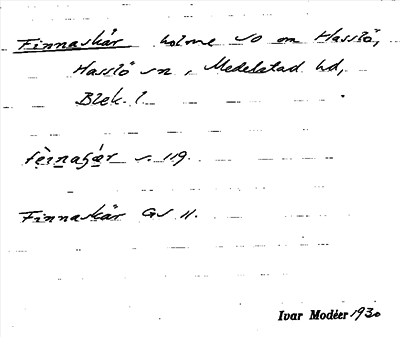 Finnaskär holme SO om Hasslö,
Hasslö sn, Medelstad hd,
Blek. l.
s. 119.
Finnaskär GS 11.
Ivar Modéer 1930